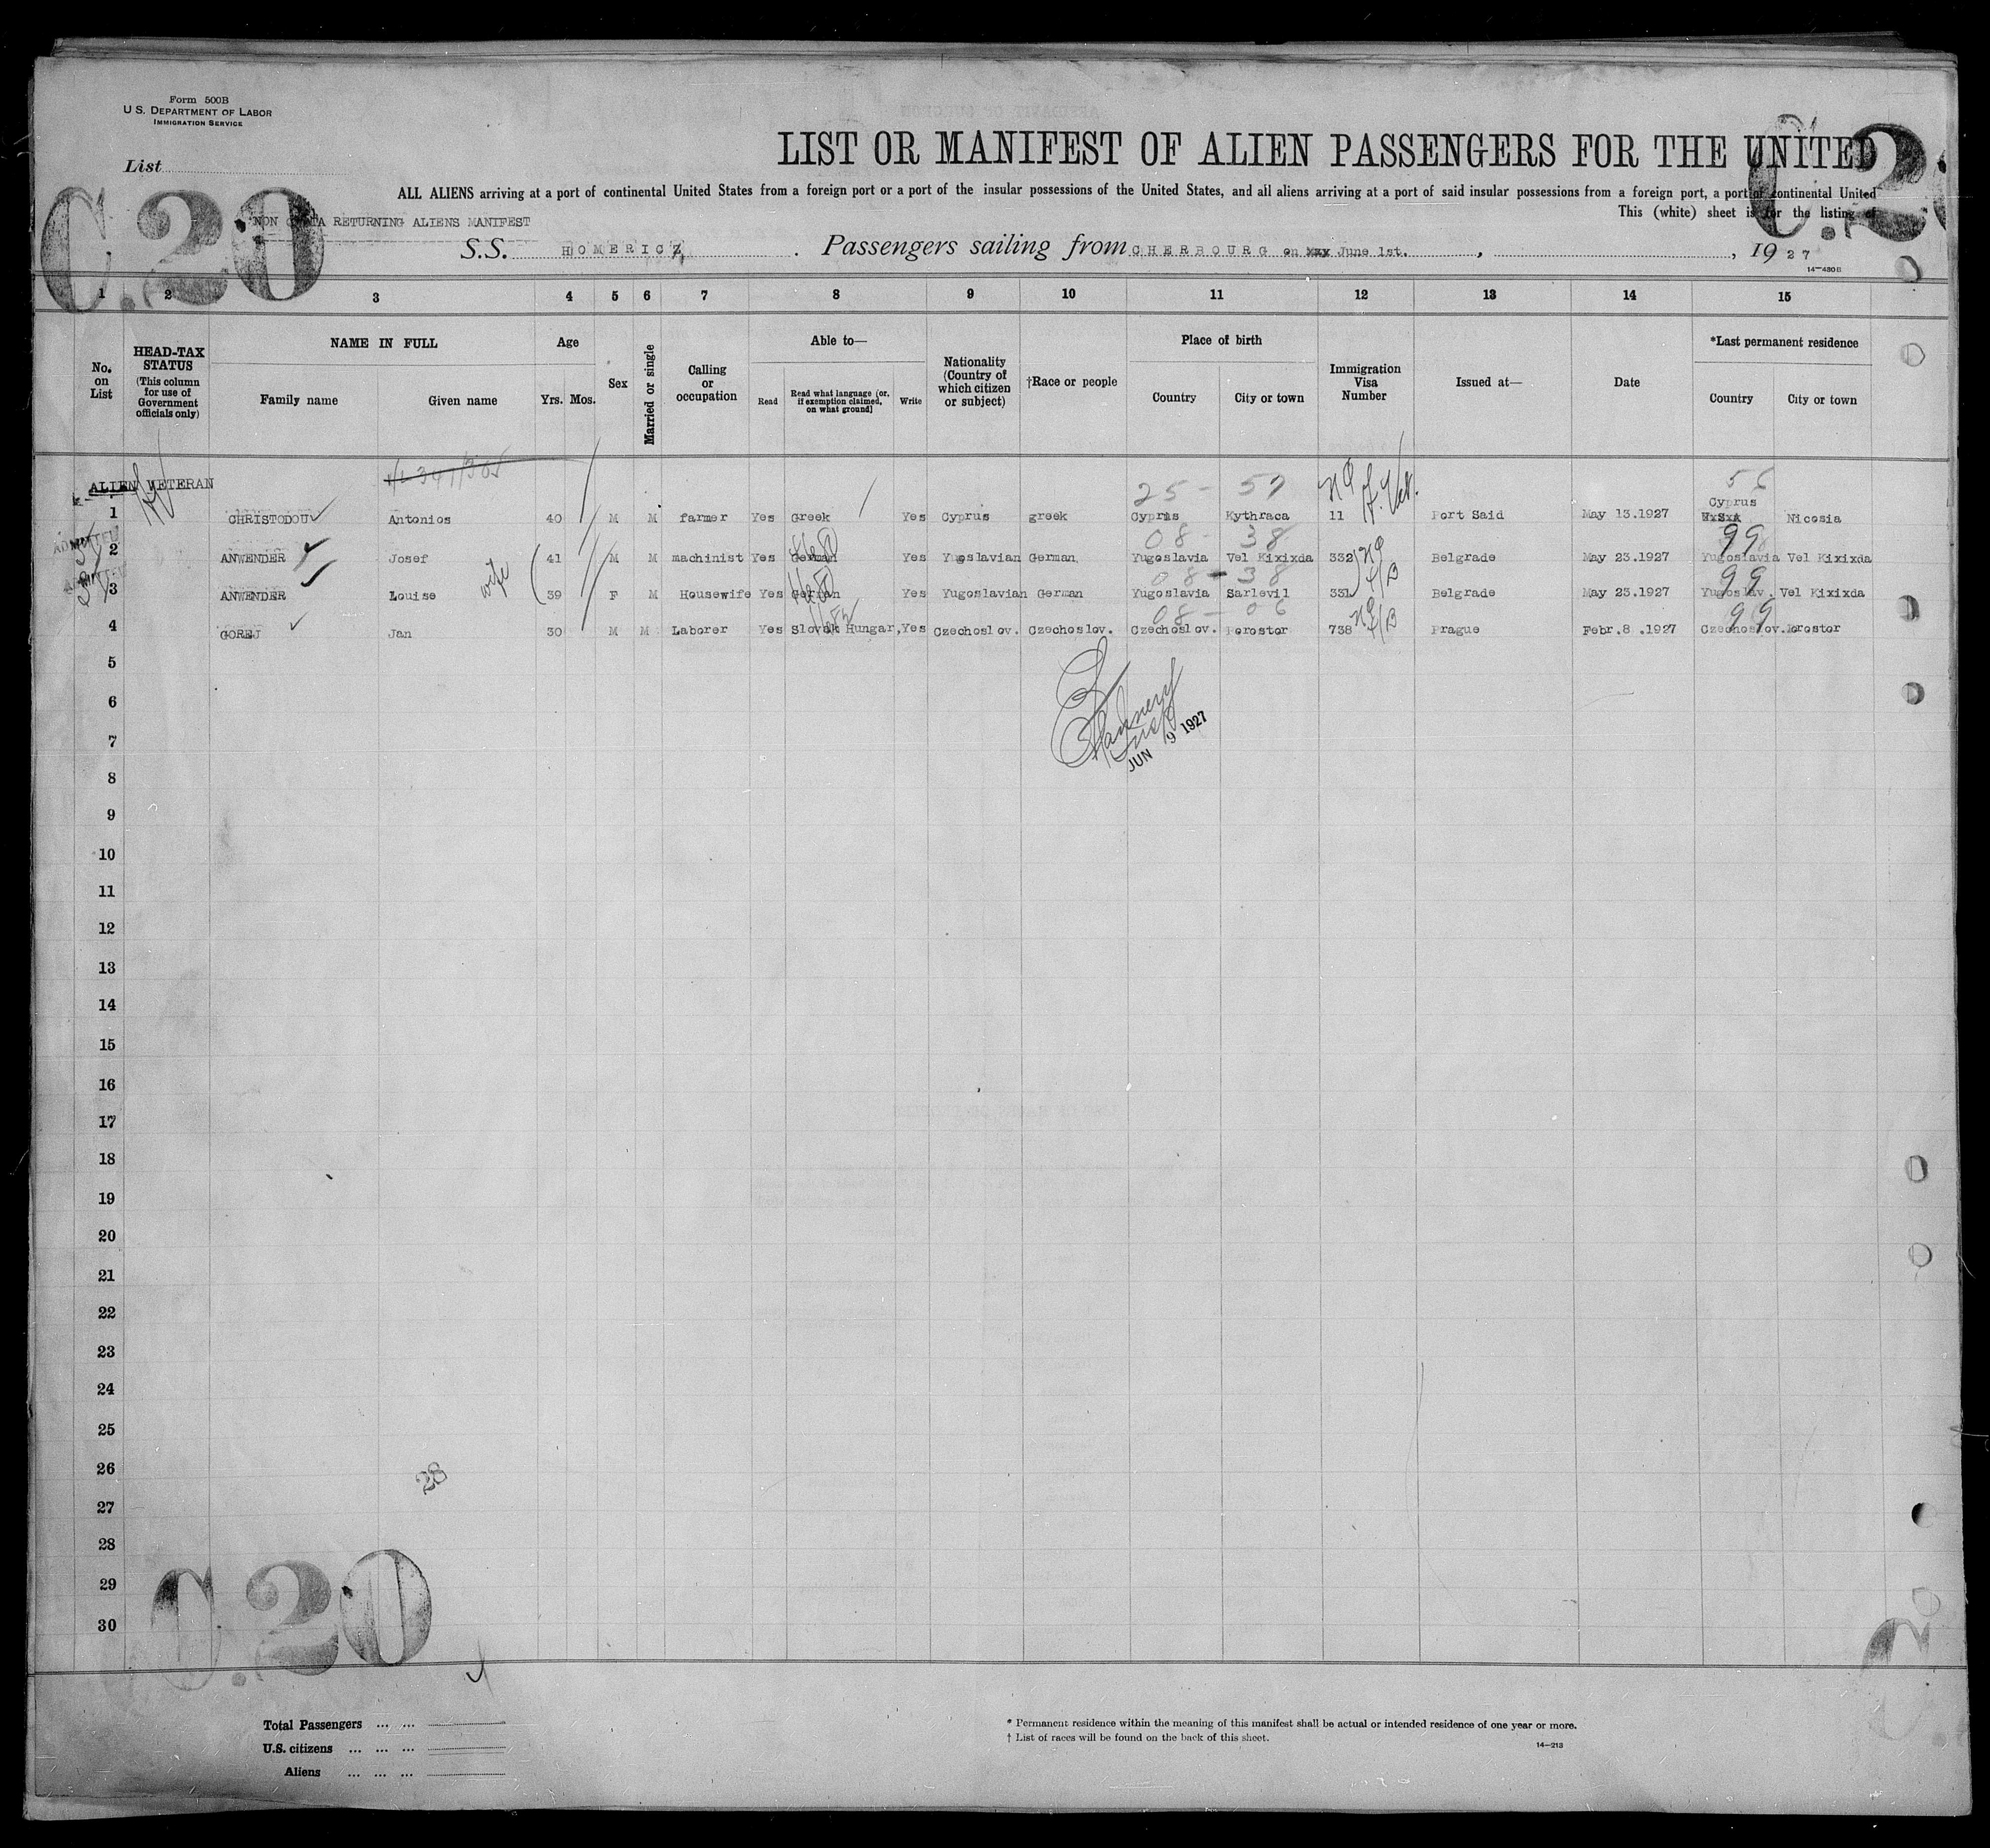 Form 500B
U. S. DEPARTMENT OF LABOR
IMMIGRATION SERVICE
List
C.20
C.2
LIST OR MANIFEST OF ALIEN PASSENGERS FOR THE UNITED
ALL ALIENS arriving at a port of continental United States from a foreign port or a port of the insular possessions of the United States, and all aliens arriving at a port of said insular possessions from a foreign port, a port of continental United
This (white) sheet is for the listing of
NON QUOTA RETURNING ALIENS MANIFEST
S.S. HOMERIC . Passengers sailing from CHERBOURG on June 1st. , , 1927
14-430B
1 2 3 4 5 6 7 8 9 10 11 12 13 14 15
No. on List
HEAD-TAX STATUS (This column for use of Government officials only)
NAME IN FULL Family name Given name
Age Yrs. Mos.
Sex
Married or single
Calling or occupation
Able to— Read Read what language (or, if exemption claimed, on what ground) Write
Nationality (Country of which citizen or subject)
†Race or people
Place of birth Country City or town
Immigration Visa Number
Issued at—
Date
*Last permanent residence Country City or town
ALIEN VETERAN
25 - 57 56
Cyprus
1 CHRISTODOU Antonios 40 M M farmer Yes Greek Yes Cyprus greek Cyprus Kythraca 11 Port Said May 13.1927 Nicosia
ADMITTED 08 - 38 99
2 ANWENDER Josef 41 M M machinist Yes German Yes Yugoslavian German Yugoslavia Vel Kixixda 332 Belgrade May 23.1927 Yugoslavia Vel Kixixda
ADMITTED 08 - 38 99
3 ANWENDER Louise wife 39 F M Housewife Yes German Yes Yugoslavian German Yugoslavia Sarlevil 331 Belgrade May 23.1927 Yugoslav. Vel Kixixda
08 - 06 99
4 GOREJ Jan 30 M M Laborer Yes Slovak Hungar, Yes Czechoslov. Czechoslov. Czechoslov. Porostor 738 Prague Febr.8 .1927 Czechoslov. Porostor
5
6
7
JUN 9 1927
8
9
10
11
12
13
14
15
16
17
18
19
20
21
22
23
24
25
26
28
27
28
29
30
C.20
Total Passengers ... ...
U.S. citizens ... ... ...
Aliens ... ... ...
* Permanent residence within the meaning of this manifest shall be actual or intended residence of one year or more.
† List of races will be found on the back of this sheet.
14-213